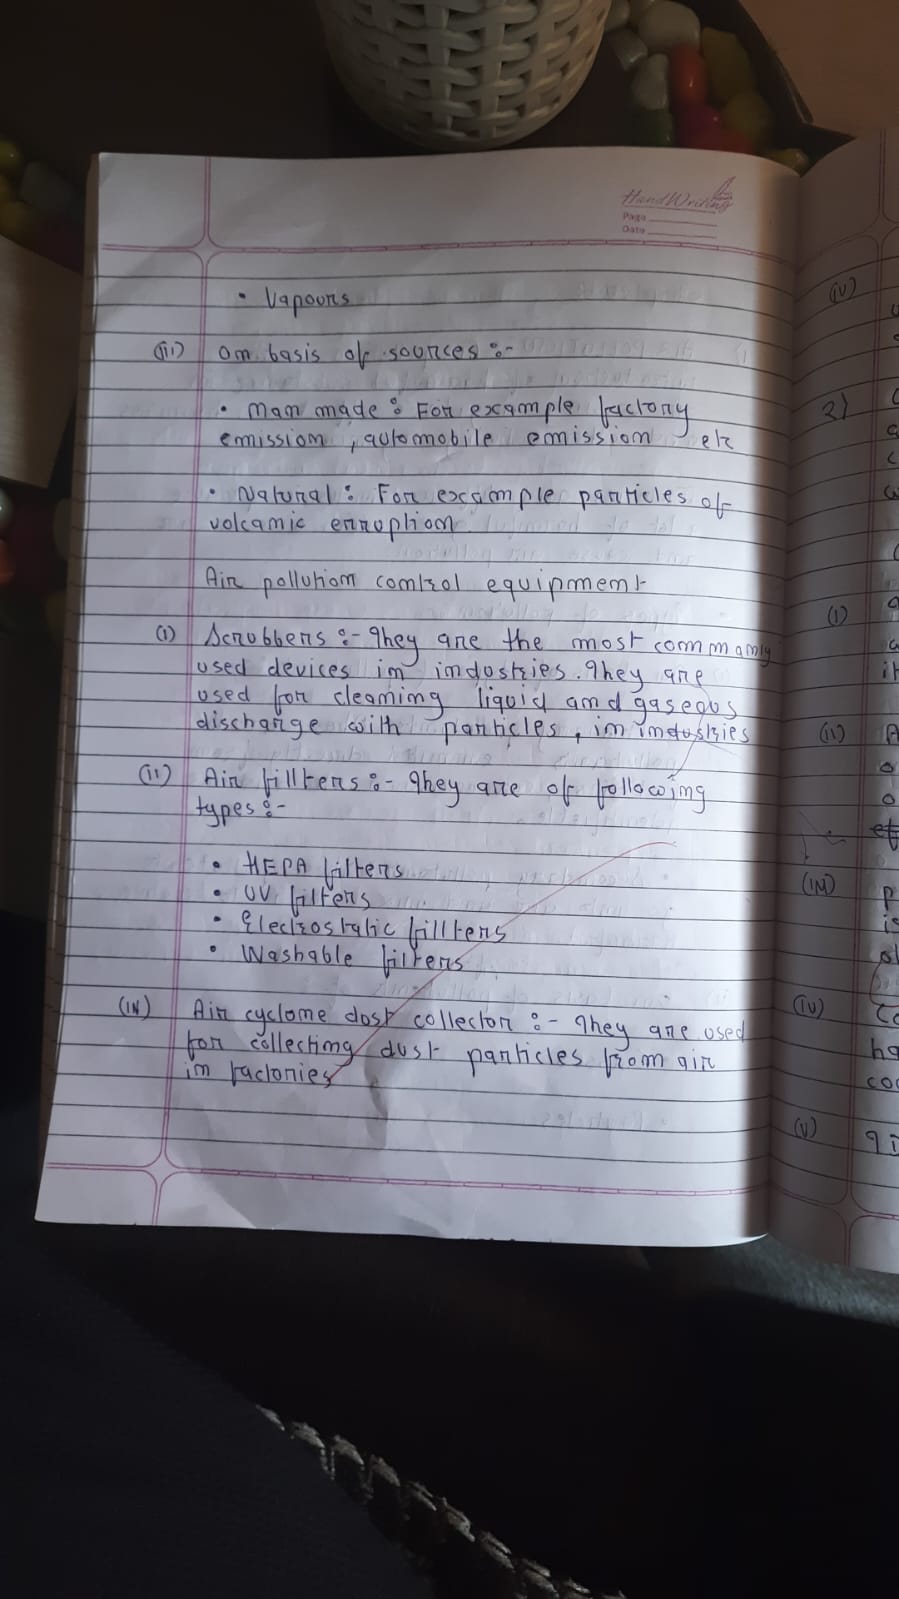 HandWriting
Page
Date
• Vapours
(iii) on basis of sources :-
• Man made : For example factory
emission , automobile emission etc
• Natural : For example particles of
volcanic erruption
Air pollution control equipment
(i) Scrubbers :- They are the most commanly
used devices in industries. They are
used for cleaning liquid and gaseous
discharge with particles , in industries
(ii) Air fillters :- They are of following
types :-
• HEPA filters
• UV filters
• Electrostatic fillters
• Washable filters
(iii) Air cyclone dust collector :- They are used
for collecting dust particles from air
in factories
(iv)
2)
(i)
(ii)
(iii)
(iv)
(v)